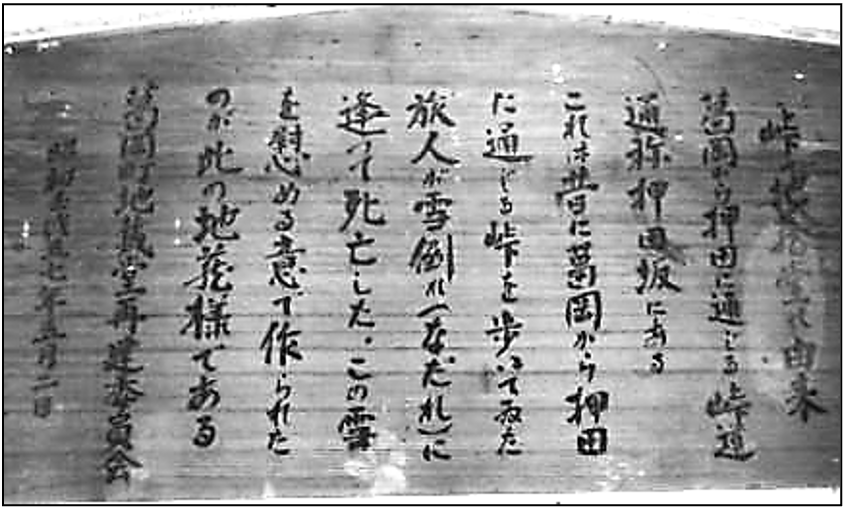 峠地蔵堂由来
葛岡から押田に通じる峠道
通称押田坂にある
これは昔に葛岡から押田
に通じる峠を歩いて居た
旅人が雪倒れ(なだれ)に
逢って死亡した。この雪
を慰める意で作られた
のが此の地蔵様である
葛岡町地蔵堂再建委員会
昭和五十七年五月一日